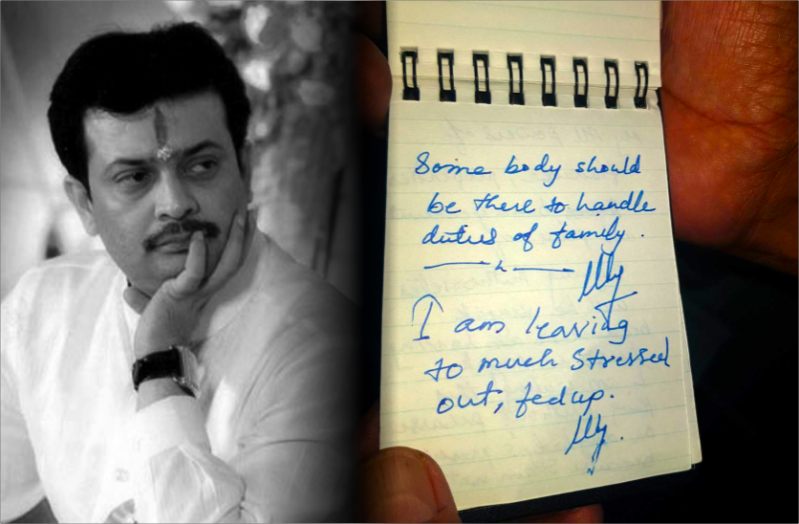 Some body should
be there to handle
duties of family.
I am leaving
to much Stressed
out, fedup.